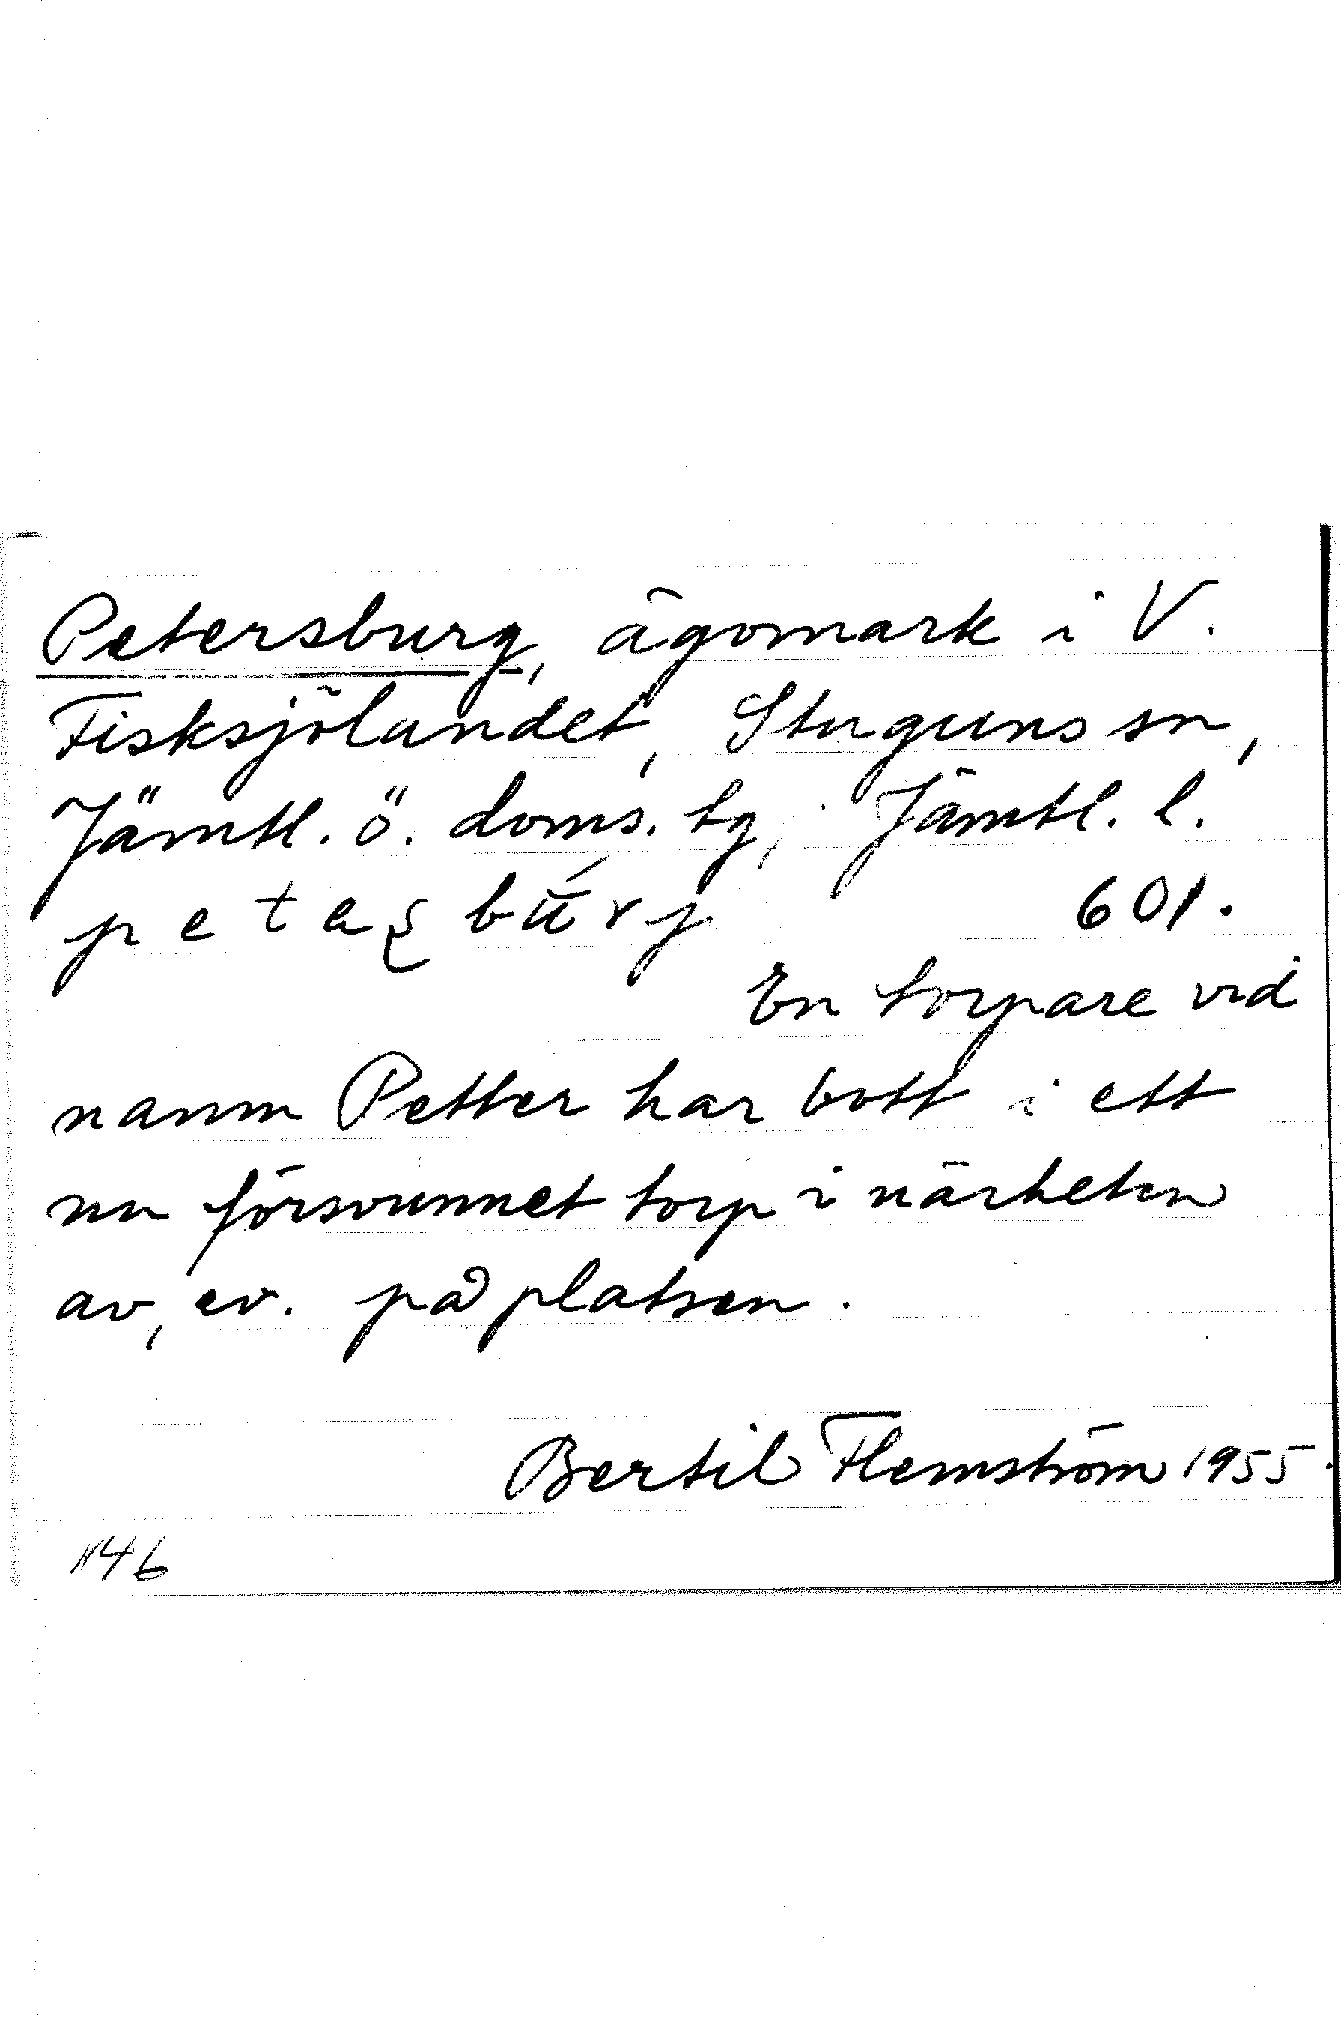 Petersburg, ägomark i V.
Fisksjölandet, Stuguns sn,
Jämtl. ö. doms. tg, Jämtl. l.
petaʂbu̇́rj 601.
En torpare vid
namn Petter har bott i ett
nu försvunnet torp i närheten
av, ev. på platsen.
Bertil Flemström 1955.
1146